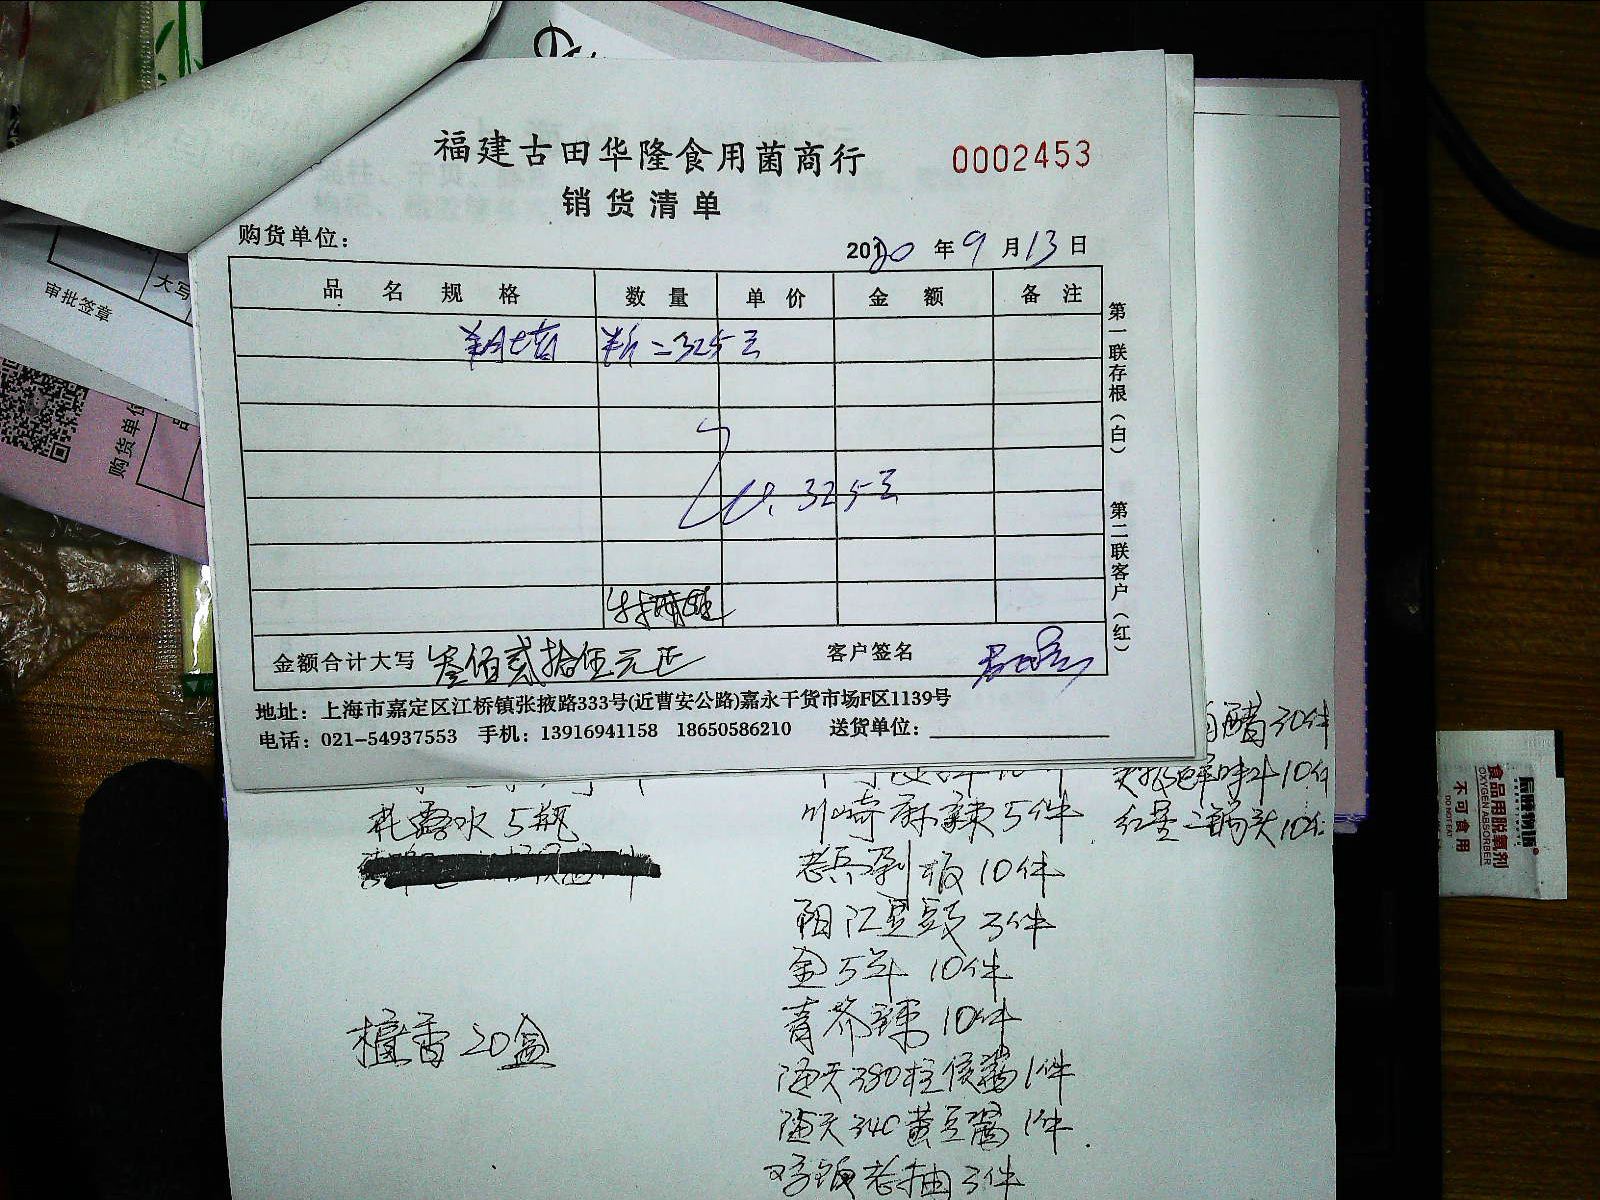 福建古田华隆食用菌商行
0002453
销货清单
购货单位：
2020 年 9 月 13 日
品名规格 数量 单价 金额 备注
325元
325元
金额合计大写 叁佰贰拾伍元正 客户签名
地址：上海市嘉定区江桥镇张掖路333号(近曹安公路)嘉永干货市场F区1139号
电话：021-54937553 手机：13916941158 18650586210 送货单位：
第一联存根（白） 第二联客户（红）
大写
审批签章
购货单位
醋30件
美极鲜味汁10件
红星二锅头10件
花露水5瓶
檀香20盒
川崎麻辣5件
阳江豆豉3件
金5年10件
青芥辣10件
海天380柱侯酱1件
海天340黄豆酱1件
老抽3件
食品用脱氧剂
OXYGEN ABSORBER
不可食用
DO NOT EAT